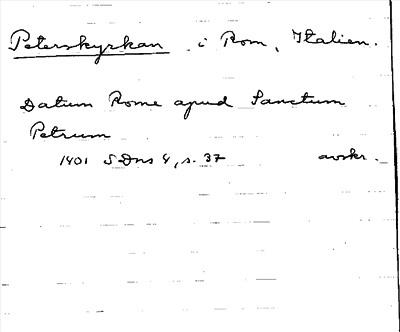 Peterskyrkan i Rom, Italien.
Datum Rome apud Sanctum
Petrum
1401 SDns 4, s. 37 avskr.